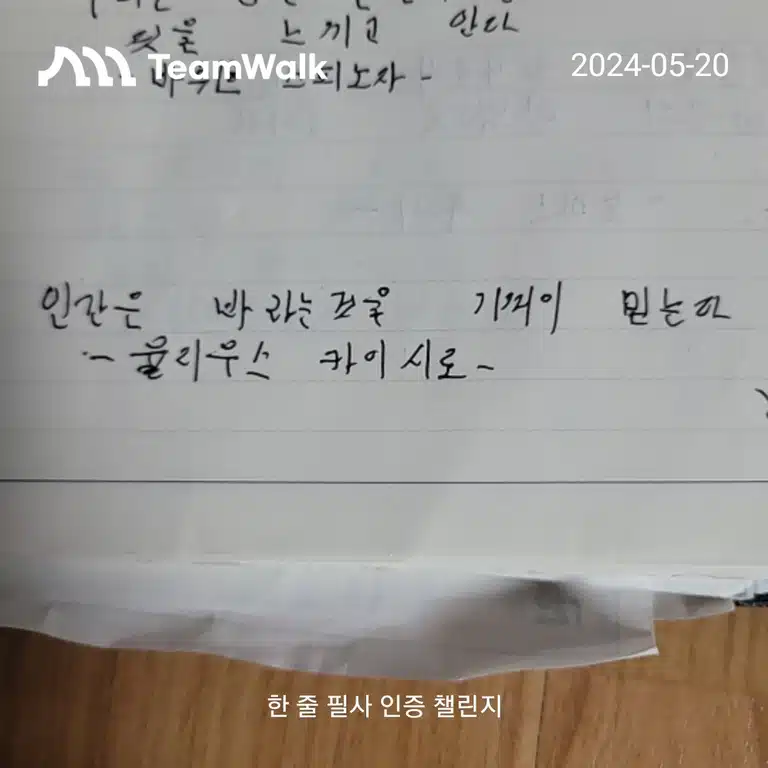 느끼고 안다
TeamWalk
2024-05-20
인간은 바라는 것을 기꺼이 믿는다
- 율리우스 카이시로 -
한 줄 필사 인증 챌린지